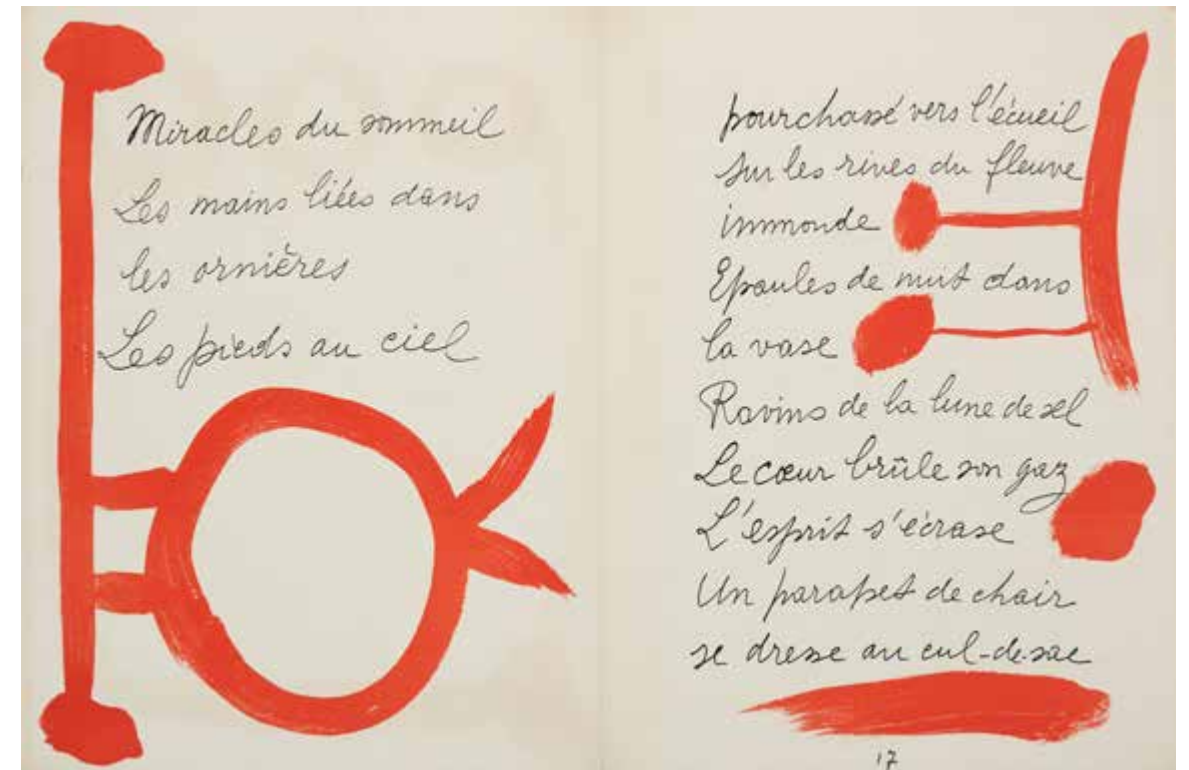 Miracles du sommeil
Les mains liées dans
les ornières
Les pieds au ciel
pourchassé vers l'écueil
sur les rives du fleuve
immonde
Epaules de nuit dans
la vase
Ravins de la lune de sel
Le cœur brûle son gaz
L'esprit s'écrase
Un parapet de chair
se dresse au cul-de-sac
17